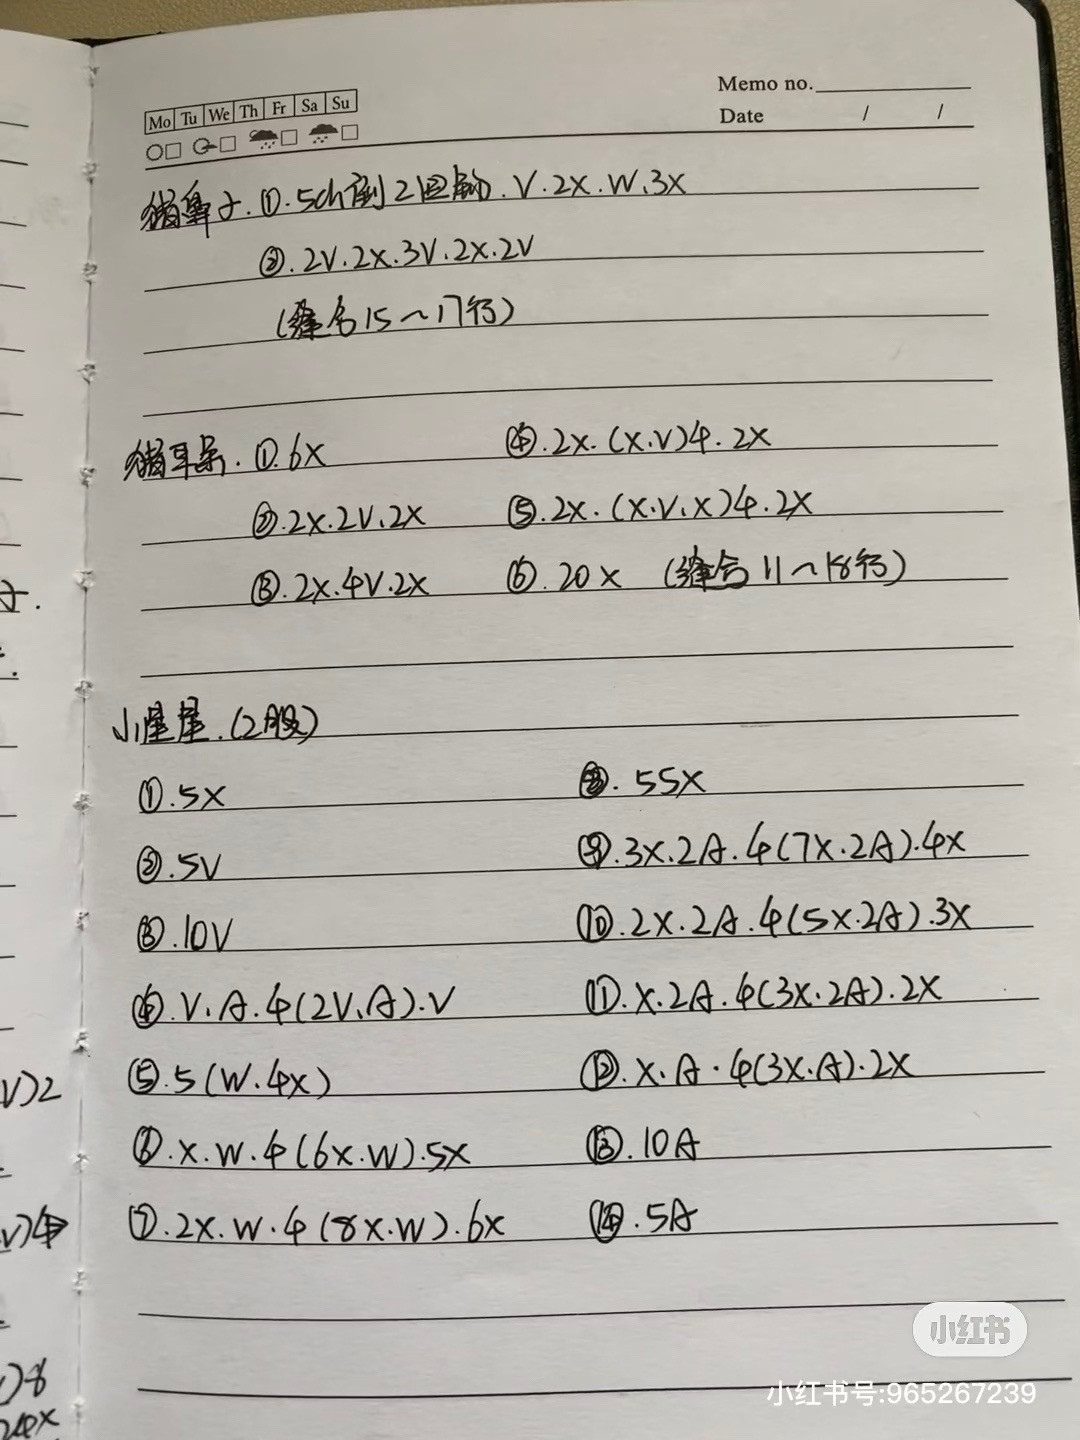 Memo no.
Mo Tu We Th Fr Sa Su
Date / /
猪鼻子.①.5ch倒2回钩.V.2X.W.3X
②.2V.2X.3V.2X.2V
(缝合15～17行)
猪耳朵.①.6X
④.2X.(X.V)4.2X
②.2X.2V.2X
⑤.2X.(X.V.X)4.2X
③.2X.4V.2X
⑥.20X (缝合11～18行)
小星星.(2股)
①.5X
⑧.55X
②.5V
⑨.3X.2A.4(7X.2A).4X
③.10V
⑩.2X.2A.4(5X.2A).3X
④.V.A.4(2V.A).V
⑪.X.2A.4(3X.2A).2X
⑤.5(W.4X)
⑫.X.A.4(3X.A).2X
⑥.X.W.4(6X.W).5X
⑬.10A
⑦.2X.W.4(8X.W).6X
⑭.5A
V)2
.V)4
)8
24X
小红书
小红书号:965267239